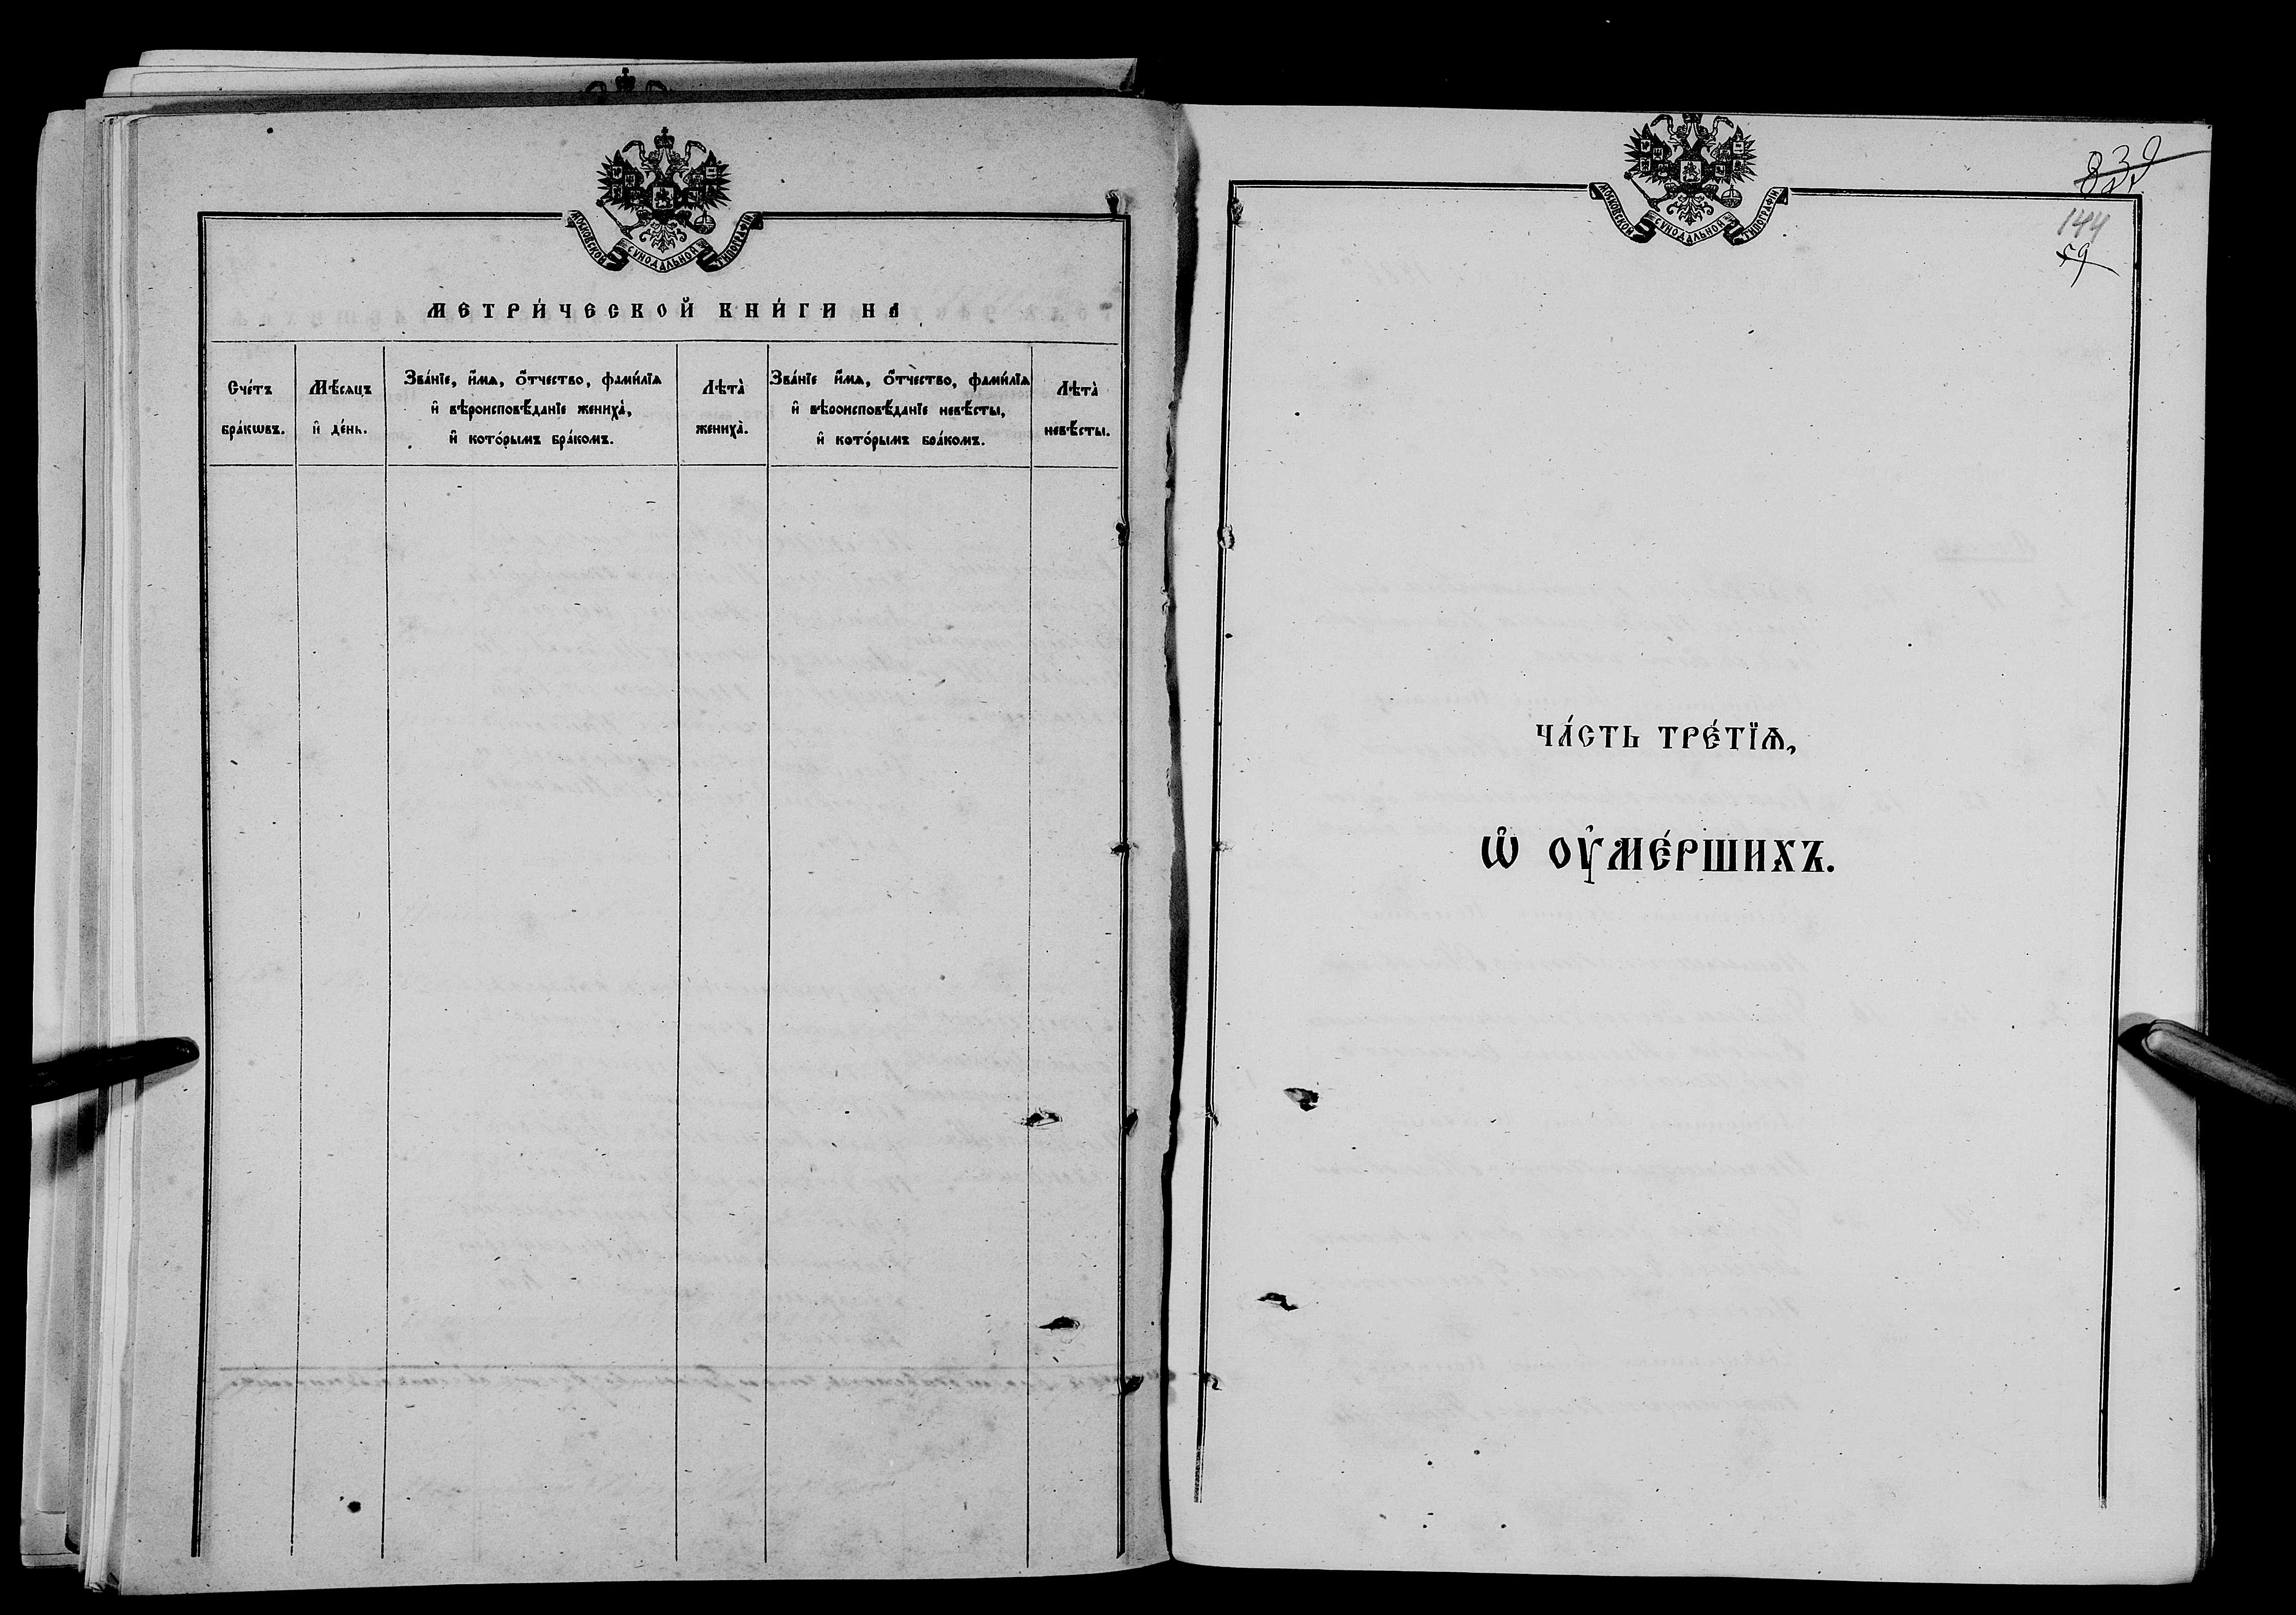 МОСКОВСКОЙ СУНОДАЛЬНОЙ ТИПОГРАФІИ
МЕТРИ́ЧЕСКОЙ КНИ́ГИ НА
Сче́тъ
бра́кѡвъ.
Мѣ́сяцъ
и҆ де́нь.
Зва́нїе, и҆́мѧ, ѻ҆́тчество, фами́лїѧ
и҆ вѣроисповѣ́данїе жениха̀,
и҆ кото́рымъ бра́комъ.
Лѣта̀
жениха̀.
Зва́нїе и҆́мѧ, ѻ҆́тчество, фами́лїѧ
и҆ вѣроисповѣ́данїе невѣ́сты,
и҆ кото́рымъ бра́комъ.
Лѣта̀
невѣ́сты.
МОСКОВСКОЙ СУНОДАЛЬНОЙ ТИПОГРАФІИ
144
59
ЧА́СТЬ ТРЕ́ТЇѦ,
Ѡ҆ ОУ҆МЕ́РШИХЪ.